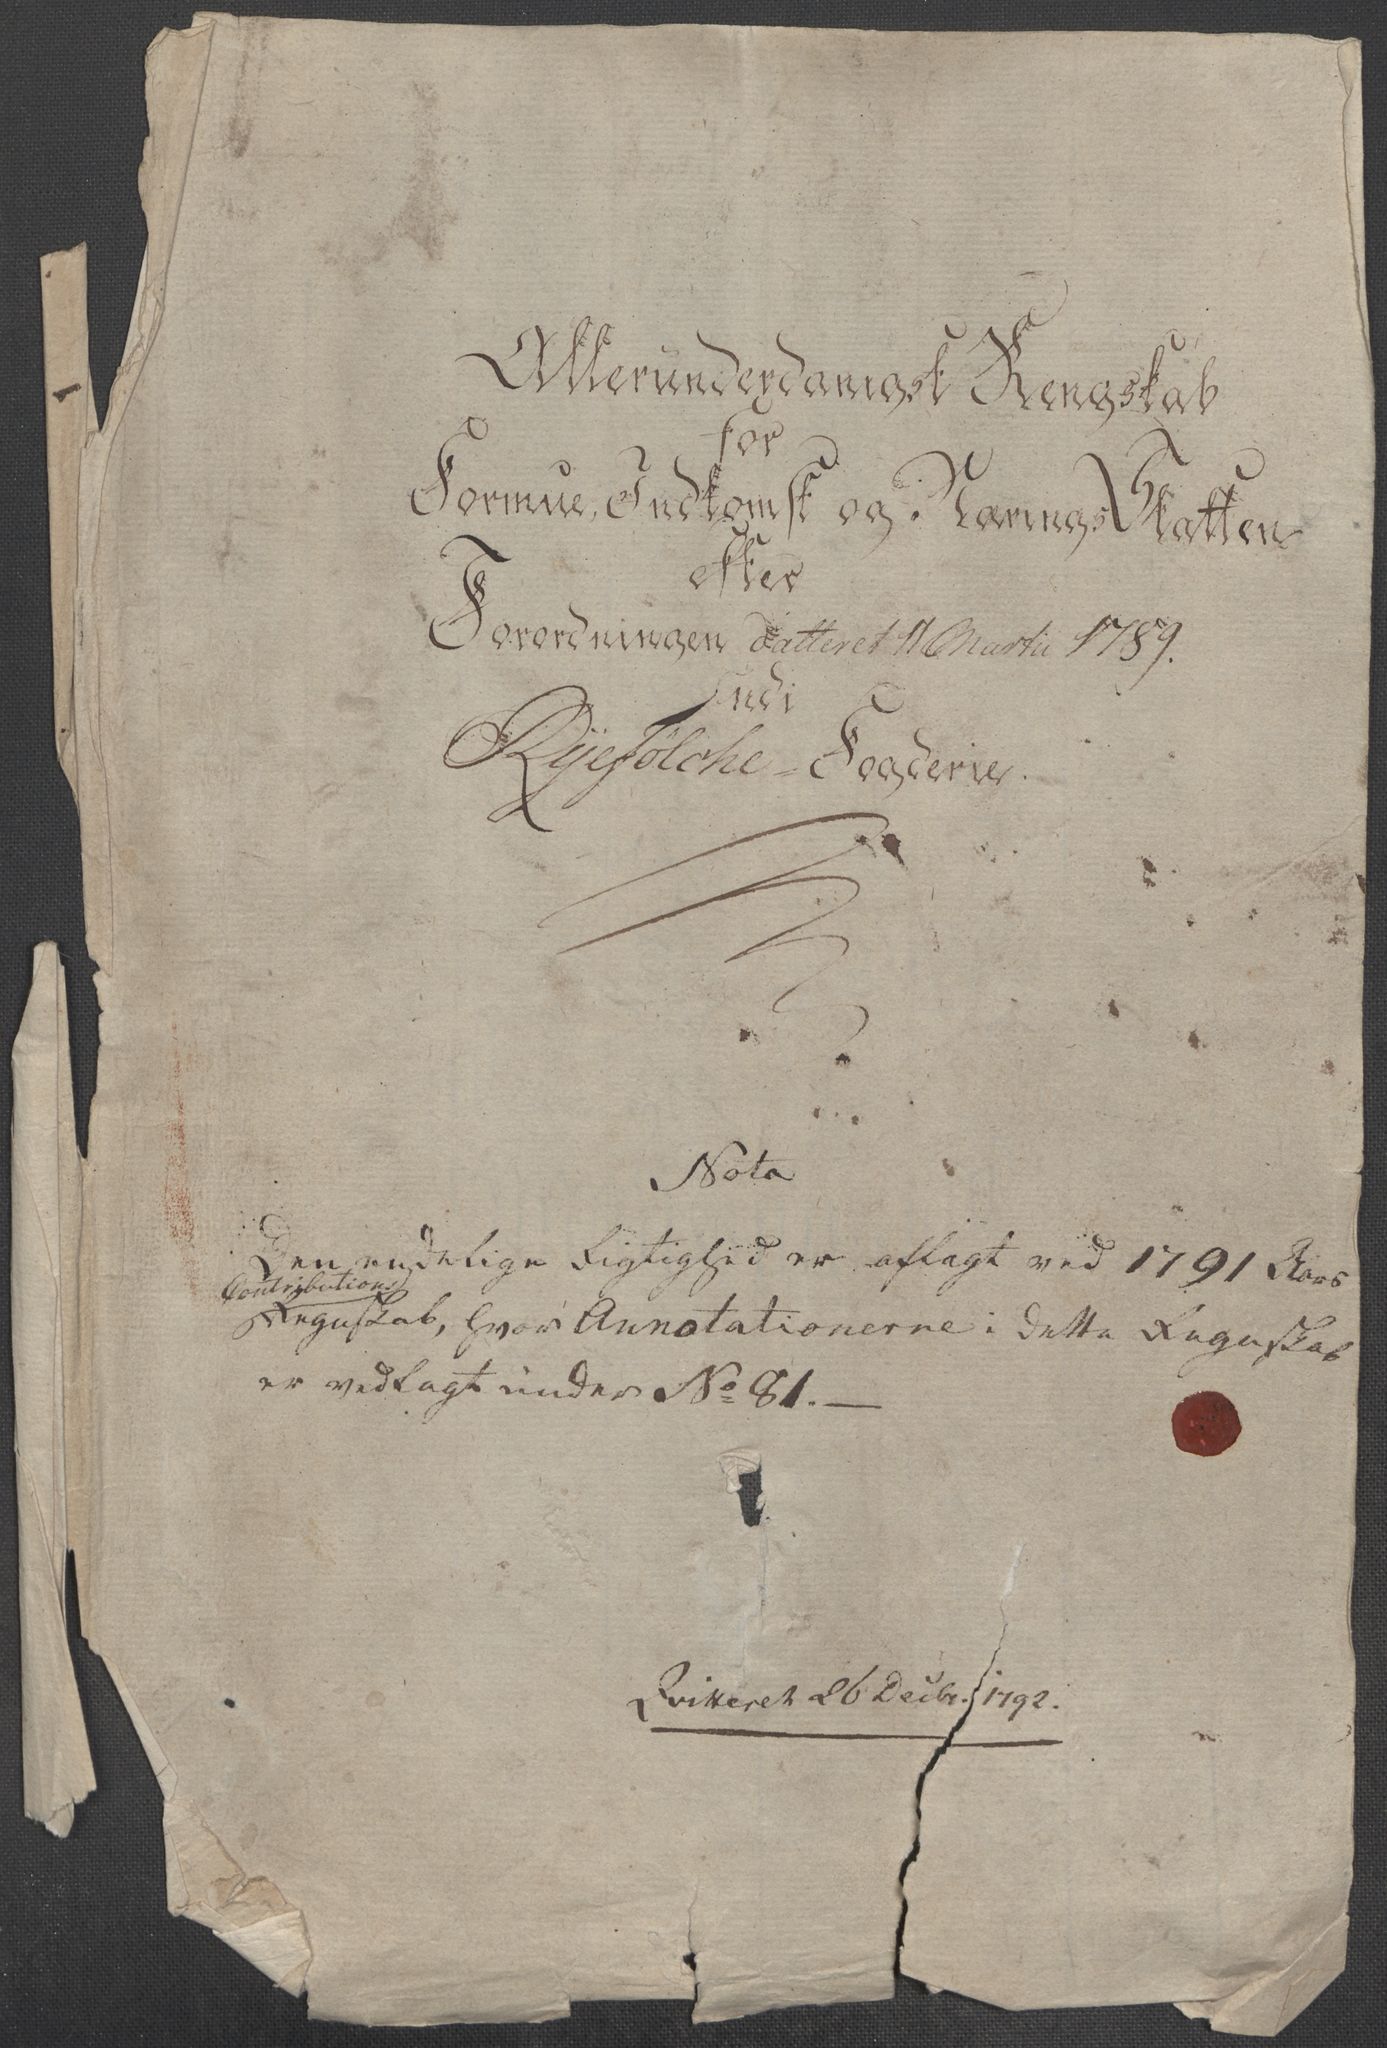 Allerunderdanigst Rengskab
for
Formue, Indkomst og Nærings Skatten
efter
Forordningen datteret 11 Martii 1789.
Udi
Ryefölche = Fogderie.
Nota
Den endelige Rigtighed er aflagt ved 1791 Aars
Contributions
Regnskab, hvor Annotationerne i dette Regnskab
er vedlagt under No 81. —
Qvitteret 26 Decbr. 1792.